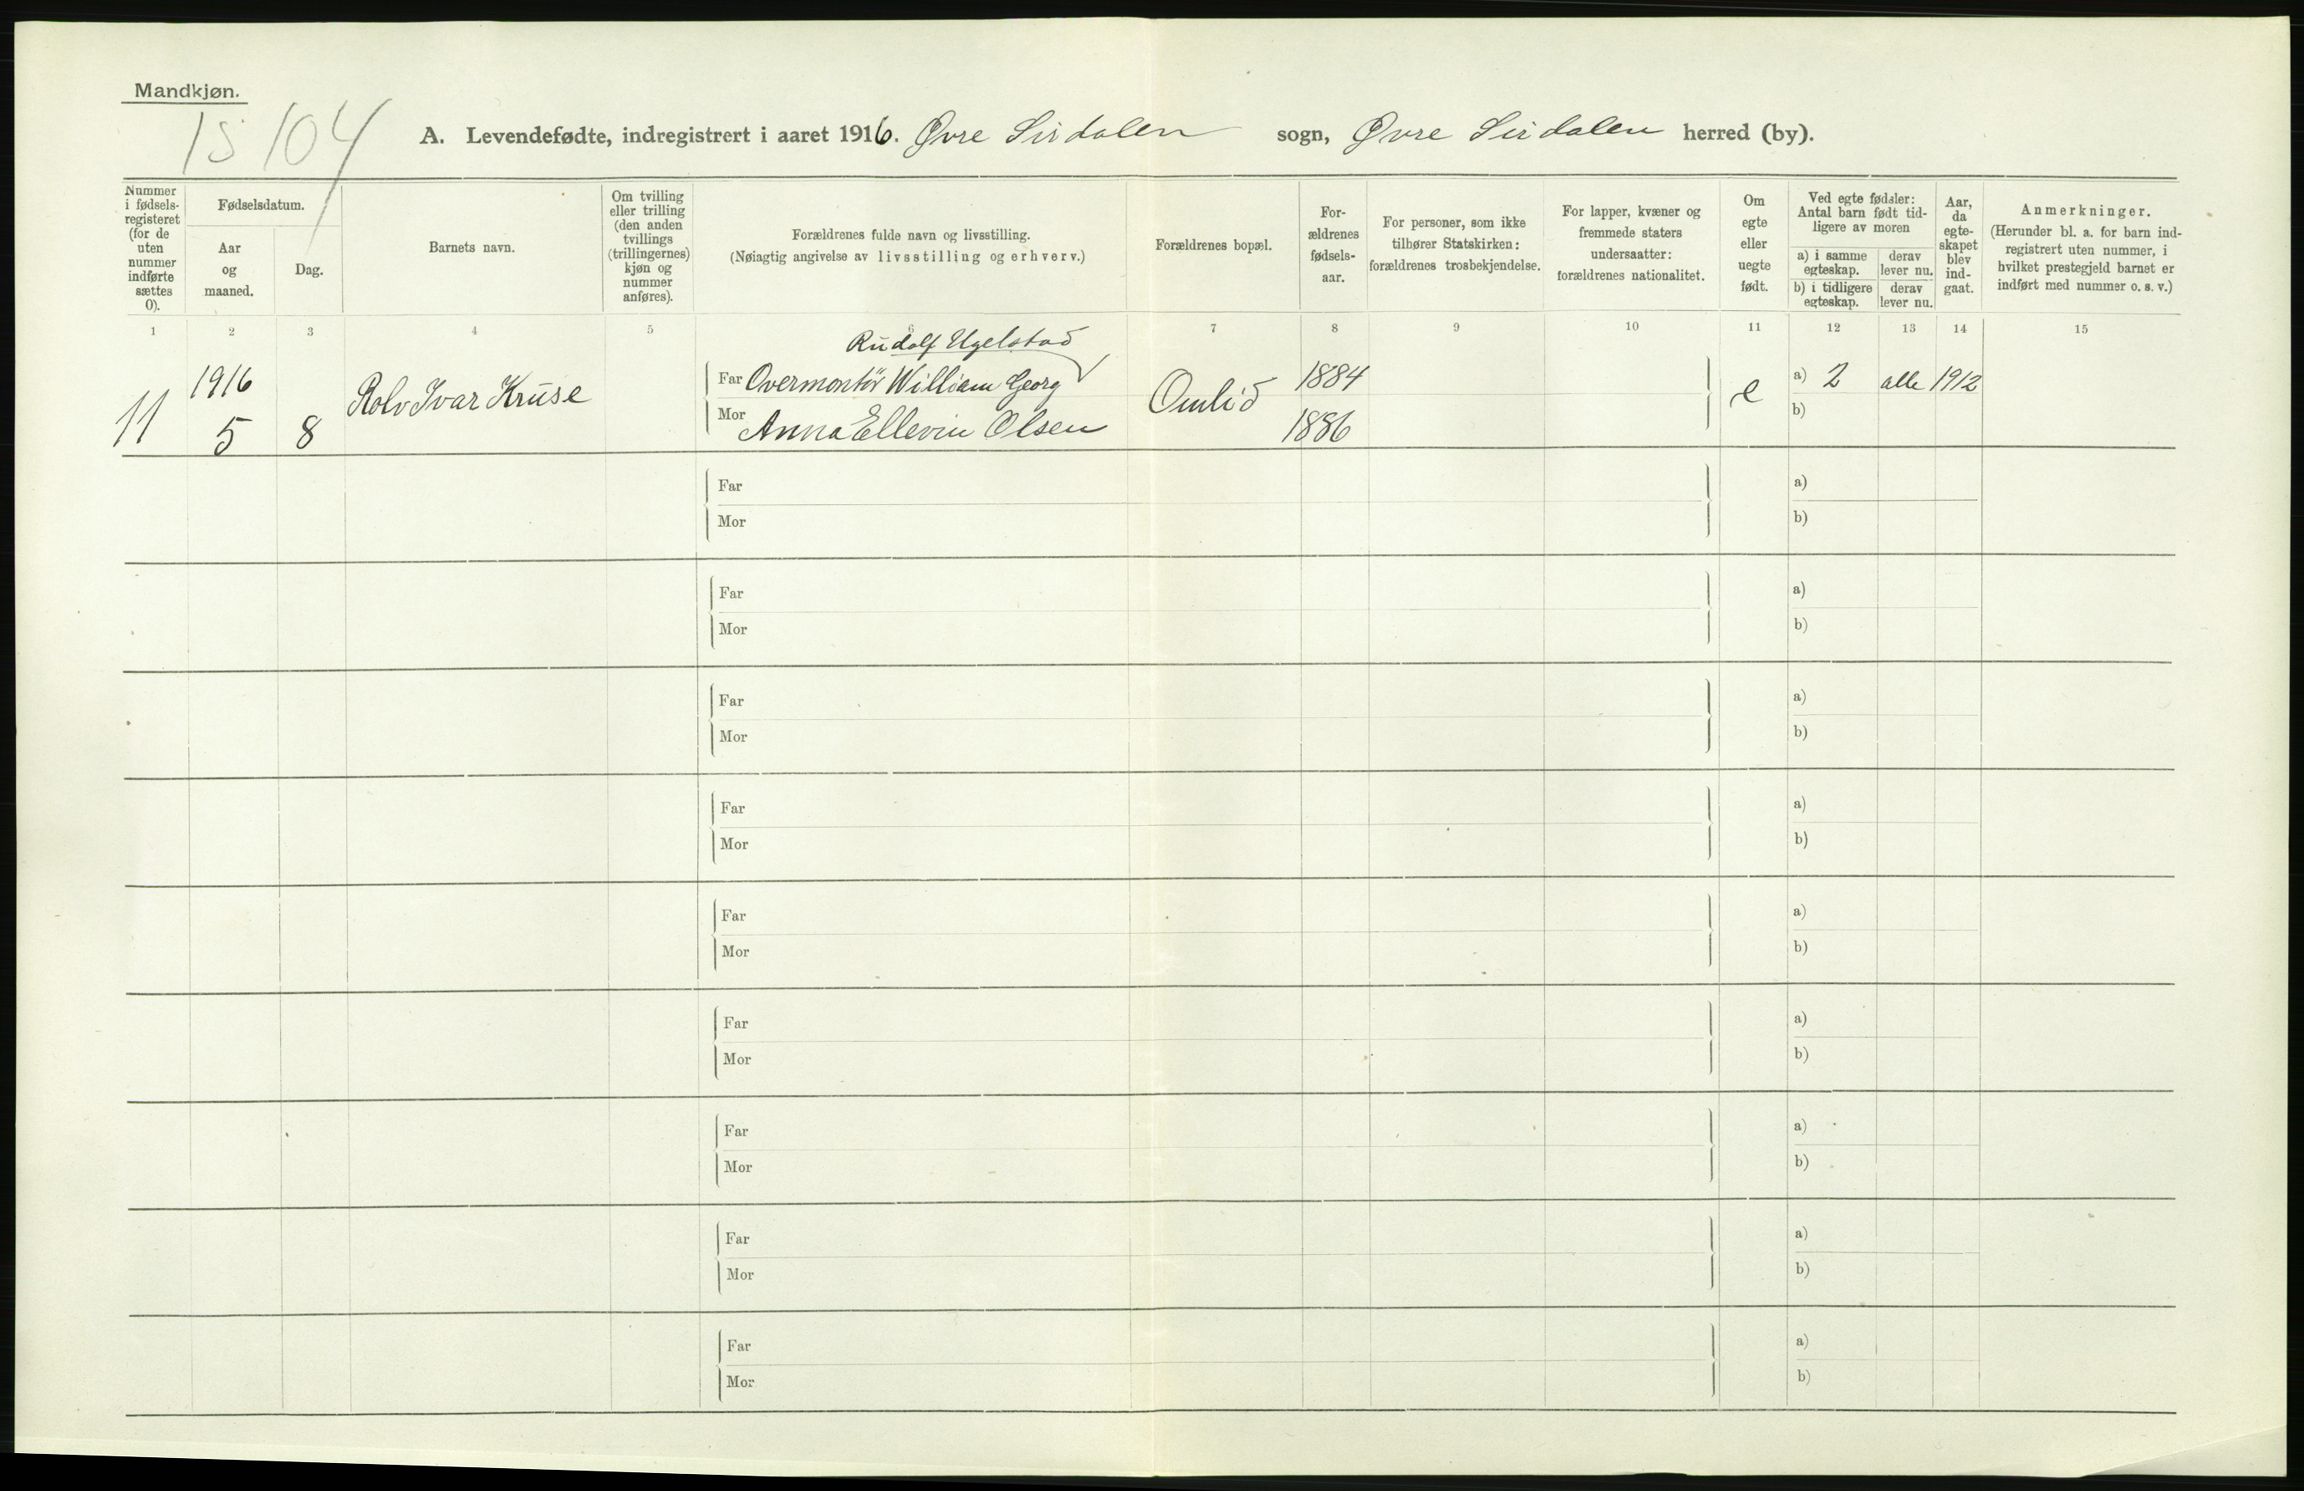 Mandkjøn.
15 104
A. Levendefødte, indregistrert i aaret 1916. Øvre Sirdalen sogn, Øvre Sirdalen herred (by).
Nummer
i fødsels-
registeret
(for de
uten
nummer
indførte
sættes
0).
Fødselsdatum.
Aar
og
maaned.
Dag.
Barnets navn.
Om tvilling
eller trilling
(den anden
tvillings
(trillingernes)
kjøn og
nummer
anføres).
Forældrenes fulde navn og livsstilling.
(Nøiagtig angivelse av livsstilling og erhverv.)
Forældrenes bopæl.
For-
ældrenes
fødsels-
aar.
For personer, som ikke
tilhører Statskirken:
forældrenes trosbekjendelse.
For lapper, kvæner og
fremmede staters
undersaatter:
forældrenes nationalitet.
Om
egte
eller
uegte
født.
Ved egte fødsler:
Antal barn født tid-
ligere av moren
a) i samme
egteskap.
derav
lever nu.
b) i tidligere
egteskap.
derav
lever nu.
Aar,
da
egte-
skapet
blev
ind-
gaat.
Anmerkninger.
(Herunder bl. a. for barn ind-
registrert uten nummer, i
hvilket prestegjeld barnet er
indført med nummer o. s. v.)
1 2 3 4 5 6 7 8 9 10 11 12 13 14 15
Rudolf Ugelstad
11 1916 5 8 Rolv Ivar Kruse
Far Overmontör William Georg
Mor Anna Ellevin Olsen
Omlid
1884
1886
e
a) 2 alle 1912
b)
Far a)
Mor b)
Far a)
Mor b)
Far a)
Mor b)
Far a)
Mor b)
Far a)
Mor b)
Far a)
Mor b)
Far a)
Mor b)
Far a)
Mor b)
Far a)
Mor b)